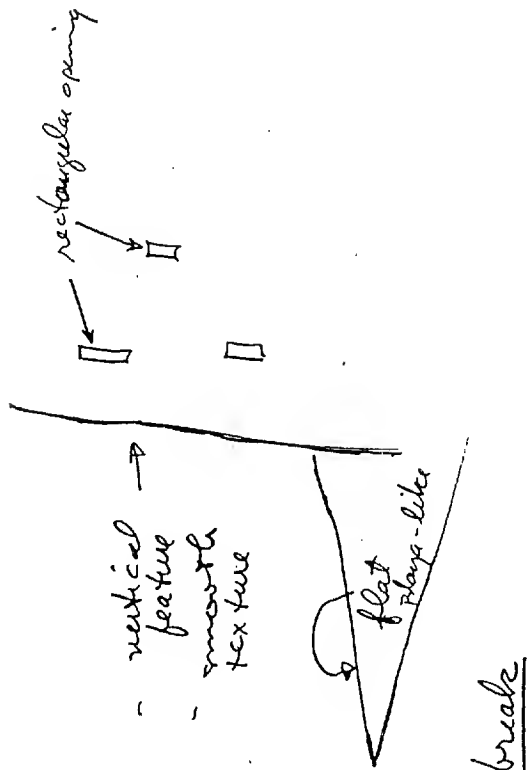 rectangular opening
- vertical →
feature
- smooth
texture
flat
playa-like
break